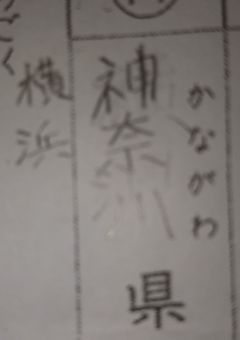 かながわ
神奈川県
横浜